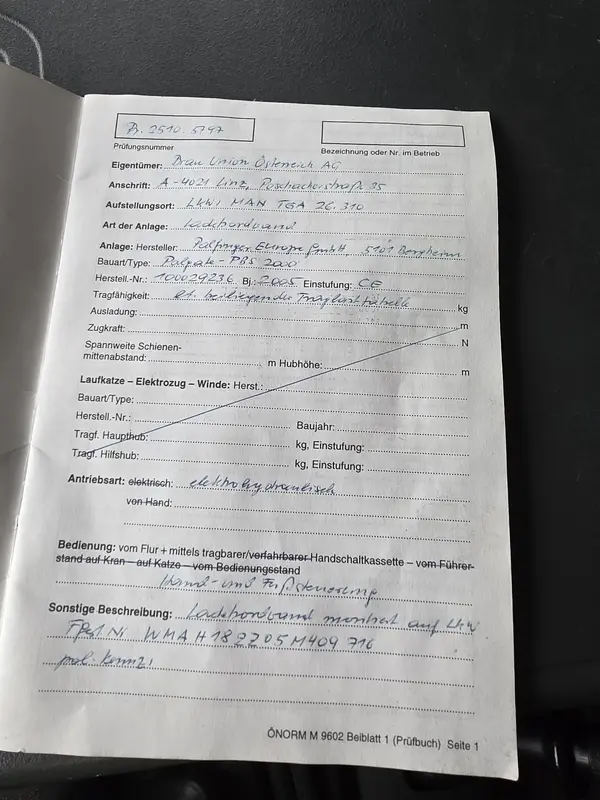 Pr. 2510. 5797
Prüfungsnummer
Bezeichnung oder Nr. im Betrieb
Eigentümer: Brau Union Österreich AG
Anschrift: A-4021 Linz, Poschacherstraße 35
Aufstellungsort: LKW MAN TGA 26.310
Art der Anlage: Ladebordwand
Anlage: Hersteller: Palfinger Europe GmbH, 5101 Bergheim
Bauart/Type: Palgate - PBS 2000
Herstell-Nr.: 100029236 Bj.: 2005 Einstufung: CE
Tragfähigkeit: lt. beiliegender Traglasttabelle kg
Ausladung: m
Zugkraft: N
Spannweite Schienen-
mittenabstand: m Hubhöhe: m
Laufkatze – Elektrozug – Winde: Herst.:
Bauart/Type:
Herstell.-Nr.: Baujahr:
Tragf. Haupthub: kg, Einstufung:
Tragf. Hilfshub: kg, Einstufung:
Antriebsart: elektrisch: elektrohydraulisch
von Hand:
Bedienung: vom Flur + mittels tragbarer/verfahrbarer Handschaltkassette – vom Führer-
stand auf Kran – auf Katze – vom Bedienungsstand
Hand- und Fußsteuerung
Sonstige Beschreibung: Ladebordwand montiert auf LKW
Fgst. Nr. WMAH182205M409716
pol. Kennz:
ÖNORM M 9602 Beiblatt 1 (Prüfbuch) Seite 1